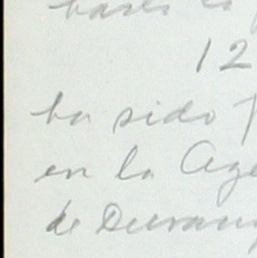 12
ha sido
en la Age
de Durang